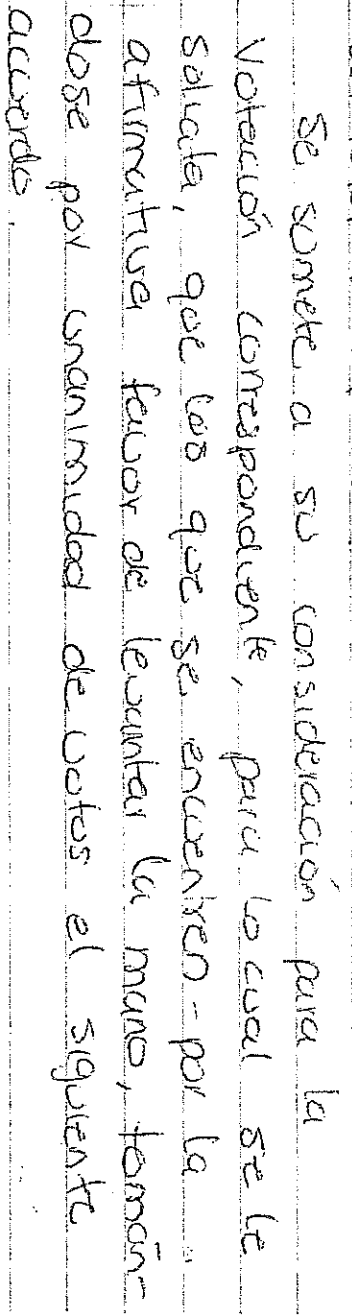 Se somete a su consideración para la
votación correspondiente, para lo cual se le
solicita, que los que se encuentren - por la
afirmativa favor de levantar la mano, tomán-
dose por unanimidad de votos el siguiente
acuerdo.